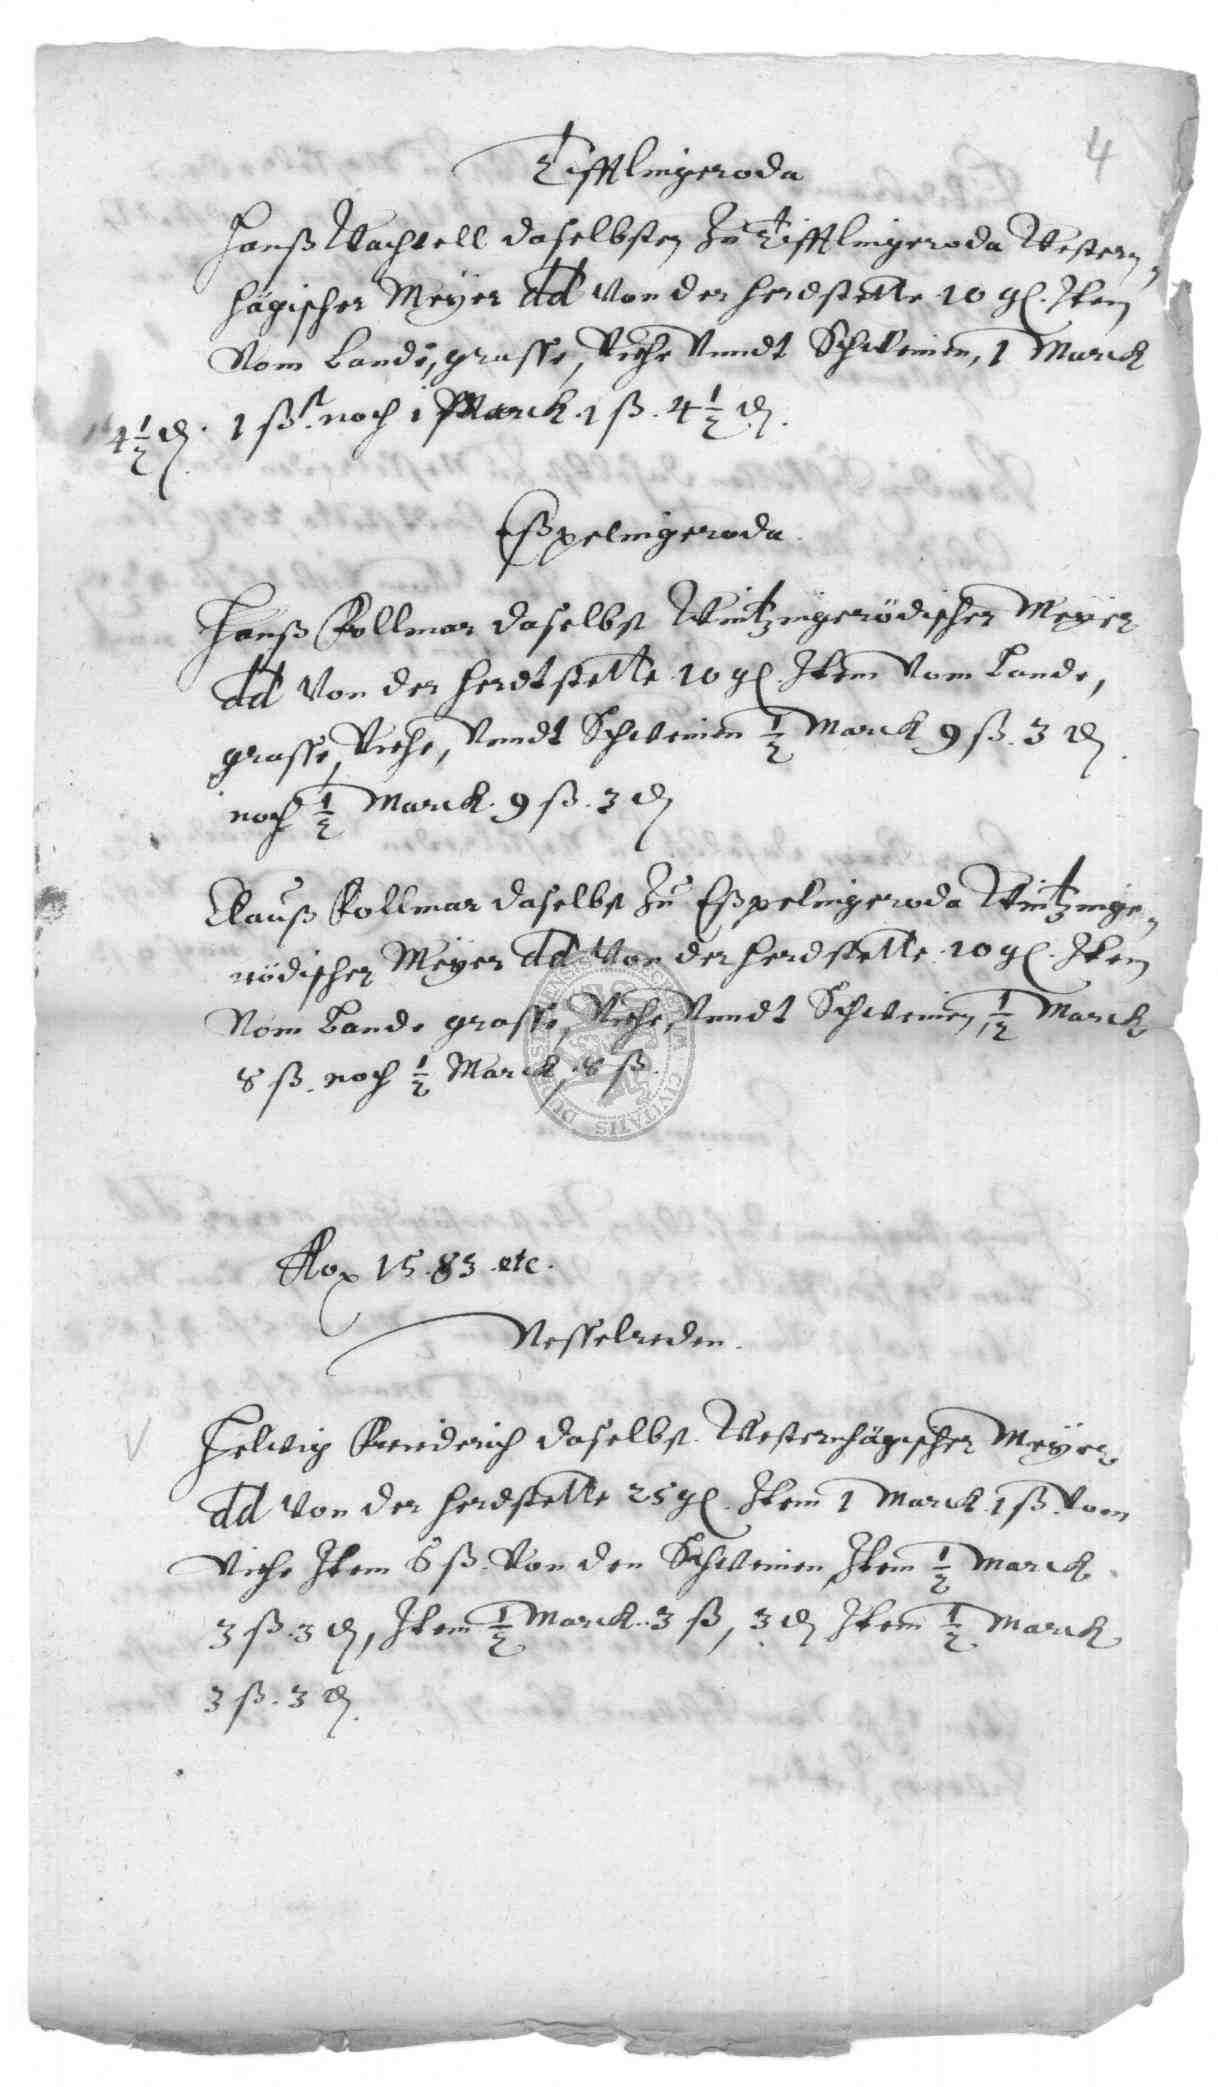 4
Tifftlingeroda
Hanß Wachtell daselbsten zu Tifftlingeroda Western-
hägischer Meyer dd von der herdstette 10 gl. Item
Vom Lande, grasse, Viehe Vnndt Schweinen, 1 Marck
4 1/2 ₰. 1 ß. noch 1 Marck. 1 ß. 4 1/2 ₰.
Eßpelingeroda.
Hanß Kollmar daselbst Wintzingerödischer Meyer
dd Von der herdtstette 10 gl. Item Vom Lande,
grasse, Viehe, Vnndt Schweinen 1/2 Marck 9 ß. 3 ₰
noch 1/2 Marck. 9 ß. 3 ₰
Clauß Kollmar daselbst zu Eßpelingeroda Wintzinge-
rödischer Meyer dd Von der herdstette 10 gl. Item
Vom Lande grasse, Viehe, Vnndt Schweinen, 1/2 Marck
8 ß. noch 1/2 Marck, 8 ß.
CIVITATIS
Ao 1583 etc.
Nesselreden.
Helwig Friederich daselbst Westernhägischer Meyer
dd Von der herdstette 25 gl. Item 1 Marck 1 ß. Vom
Viehe Item 8 ß. Von den Schweinen Item 1/2 Marck
3 ß. 3 ₰, Item 1/2 Marck. 3 ß, 3 ₰ Item 1/2 Marck
3 ß. 3 ₰.